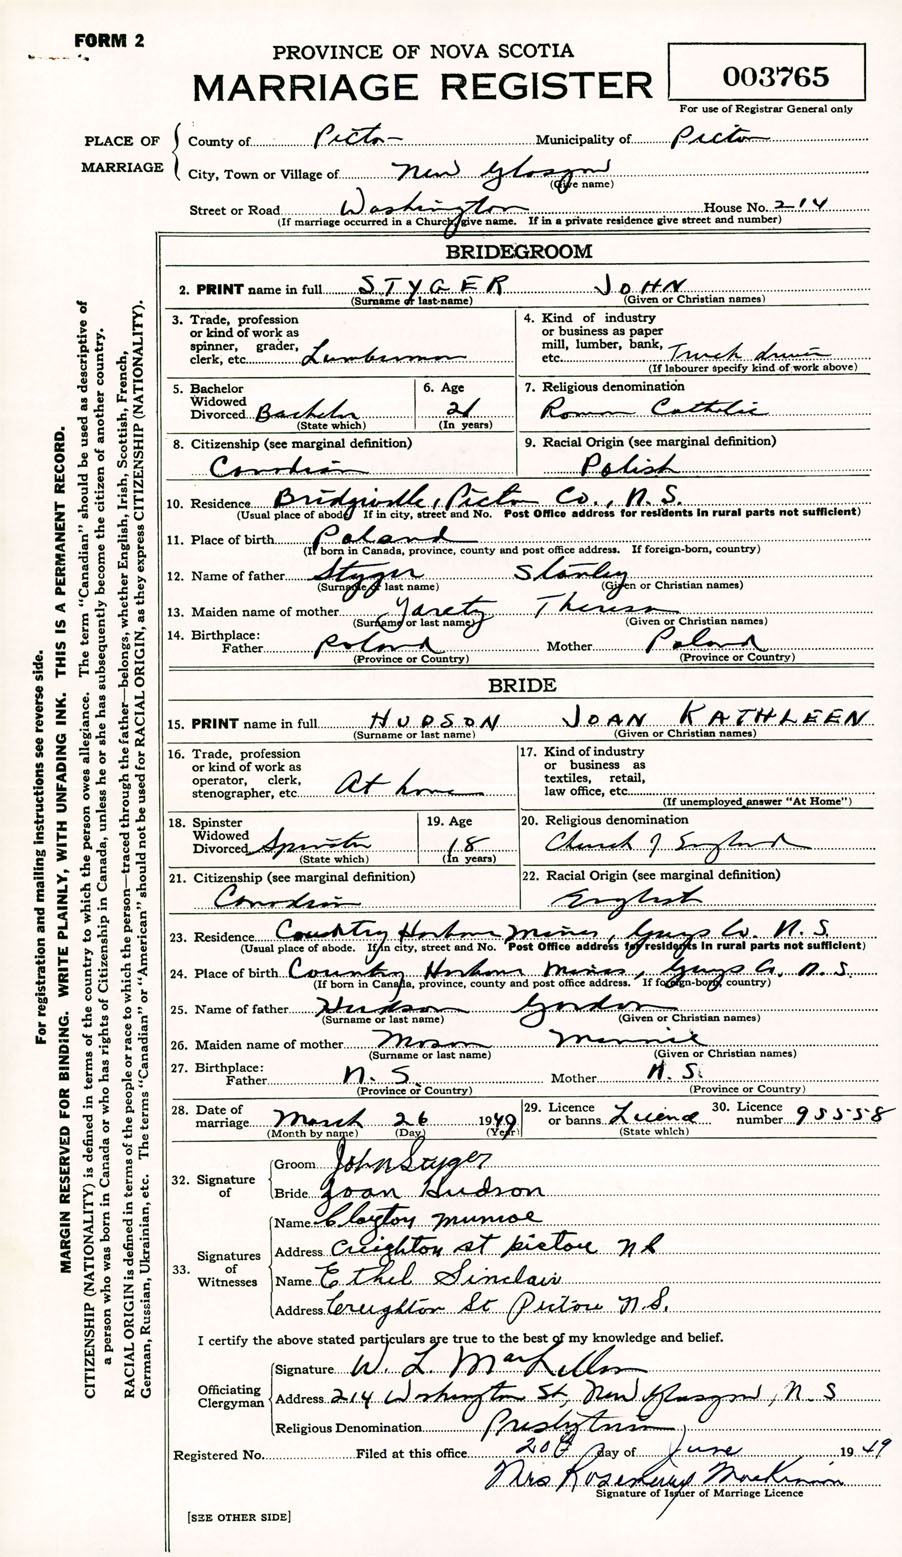 FORM 2
PROVINCE OF NOVA SCOTIA
MARRIAGE REGISTER
003765
For use of Registrar General only
PLACE OF MARRIAGE
County of Pictou Municipality of Pictou
City, Town or Village of New Glasgow
(Give name)
Street or Road Washington House No. 214
(If marriage occurred in a Church give name. If in a private residence give street and number)
BRIDEGROOM
2. PRINT name in full STYGER JOHN
(Surname or last name) (Given or Christian names)
3. Trade, profession or kind of work as spinner, grader, clerk, etc. Lumberman
4. Kind of industry or business as paper mill, lumber, bank, etc. Truck driver
(If labourer specify kind of work above)
5. Bachelor Widowed Divorced Bachelor
(State which)
6. Age 21
(In years)
7. Religious denomination
Roman Catholic
8. Citizenship (see marginal definition)
Canadian
9. Racial Origin (see marginal definition)
Polish
10. Residence Bridgeville, Pictou Co., N.S.
(Usual place of abode. If in city, street and No. Post Office address for residents in rural parts not sufficient)
11. Place of birth Poland
(If born in Canada, province, county and post office address. If foreign-born, country)
12. Name of father Styger Stanley
(Surname or last name) (Given or Christian names)
13. Maiden name of mother Theresa
(Surname or last name) (Given or Christian names)
14. Birthplace:
Father Poland Mother Poland
(Province or Country) (Province or Country)
BRIDE
15. PRINT name in full HUDSON JOAN KATHLEEN
(Surname or last name) (Given or Christian names)
16. Trade, profession or kind of work as operator, clerk, stenographer, etc. At home
17. Kind of industry or business as textiles, retail, law office, etc.
(If unemployed answer "At Home")
18. Spinster Widowed Divorced Spinster
(State which)
19. Age 18
(In years)
20. Religious denomination
Church of England
21. Citizenship (see marginal definition)
Canadian
22. Racial Origin (see marginal definition)
English
23. Residence Country Harbour Mines, Guys Co. N.S.
(Usual place of abode. If in city, street and No. Post Office address for residents in rural parts not sufficient)
24. Place of birth Country Harbour Mines, Guys Co. N.S.
(If born in Canada, province, county and post office address. If foreign-born, country)
25. Name of father Hudson Gordon
(Surname or last name) (Given or Christian names)
26. Maiden name of mother Mason Minnie
(Surname or last name) (Given or Christian names)
27. Birthplace:
Father N.S. Mother N.S.
(Province or Country) (Province or Country)
28. Date of marriage March 26 1949
(Month by name) (Day) (Year)
29. Licence or banns Licence
(State which)
30. Licence number 95558
32. Signature of
Groom John Styger
Bride Joan Hudson
33. Signatures of Witnesses
Name Clayton Munroe
Address Creighton st pictou NS
Name Ethel Sinclair
Address Creighton St Pictou N.S.
I certify the above stated particulars are true to the best of my knowledge and belief.
Officiating Clergyman
Signature W. L. MacLellan
Address 214 Washington St, New Glasgow, N.S
Religious Denomination Presbyterian
Registered No. Filed at this office 20th day of June 1949
Mrs Rosemary MacKinnon
Signature of Issuer of Marriage Licence
[SEE OTHER SIDE]
For registration and mailing instructions see reverse side.
MARGIN RESERVED FOR BINDING. WRITE PLAINLY, WITH UNFADING INK. THIS IS A PERMANENT RECORD.
CITIZENSHIP (NATIONALITY) is defined in terms of the country to which the person owes allegiance. The term "Canadian" should be used as descriptive of
a person who was born in Canada or who has rights of Citizenship in Canada, unless he or she has subsequently become the citizen of another country.
RACIAL ORIGIN is defined in terms of the people or race to which the person—traced through the father—belongs, whether English, Irish, Scottish, French,
German, Russian, Ukrainian, etc. The terms "Canadian" or "American" should not be used for RACIAL ORIGIN, as they express CITIZENSHIP (NATIONALITY).